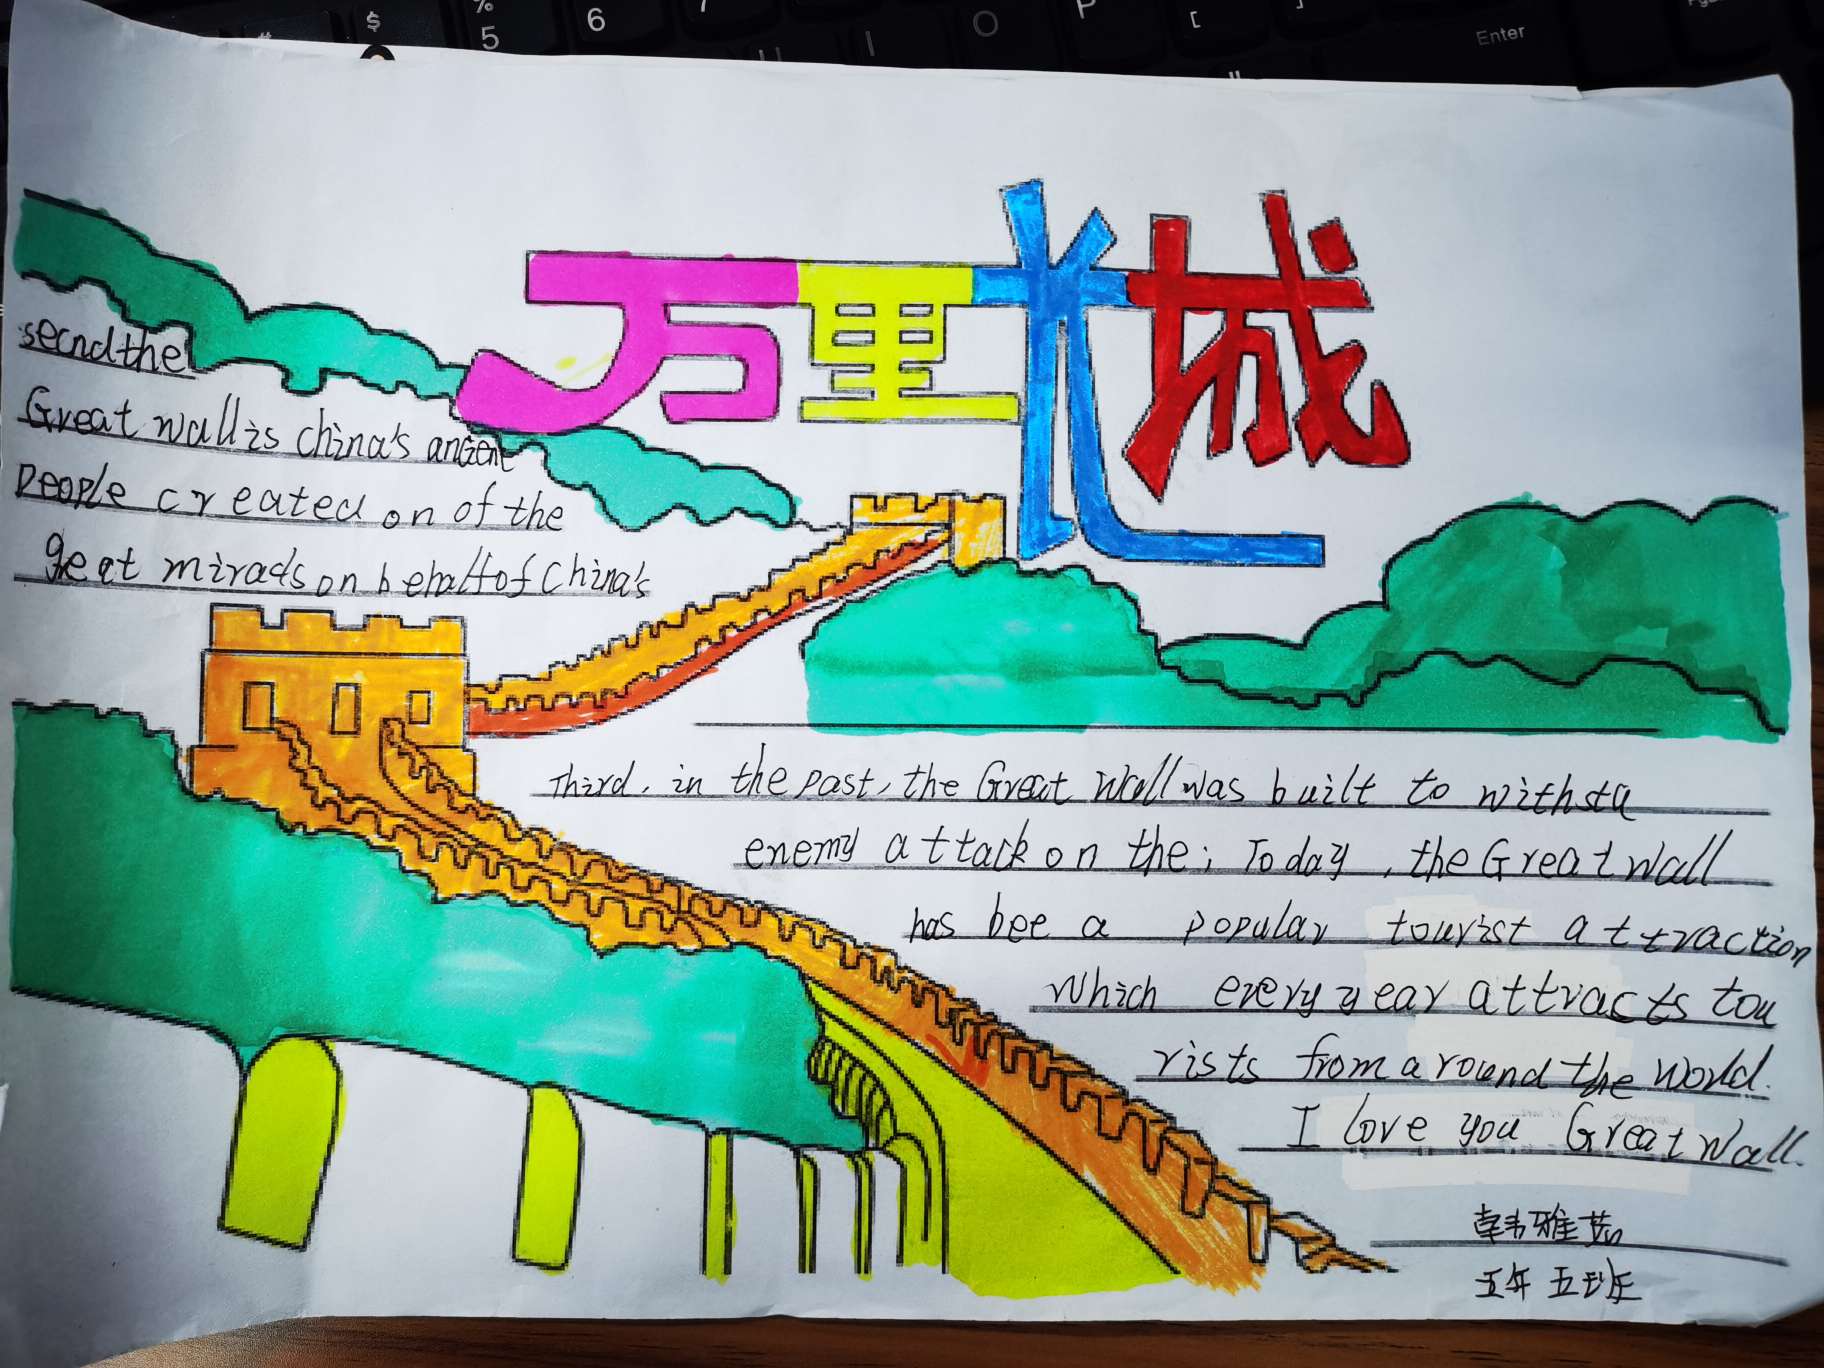 万里长城
secndthe
Great wall is China's ancient
people created on of the
geat mirads on behalf of China's
Third, in the past, the Great Wall was built to withsta
enemy attack on the; Today, the Great Wall
has bee a popular tourist attraction
which every year attracts tou
rists from around the world.
I love you Great Wall.
韩雅茹
五年五班
% $ 5 6 7 O P [ ] Enter